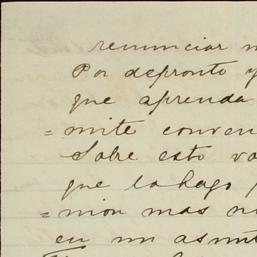 renunciar
Por depronto y
que aprenda
= mite conven
Sobre esto
que lo hago
= nion mas
en un